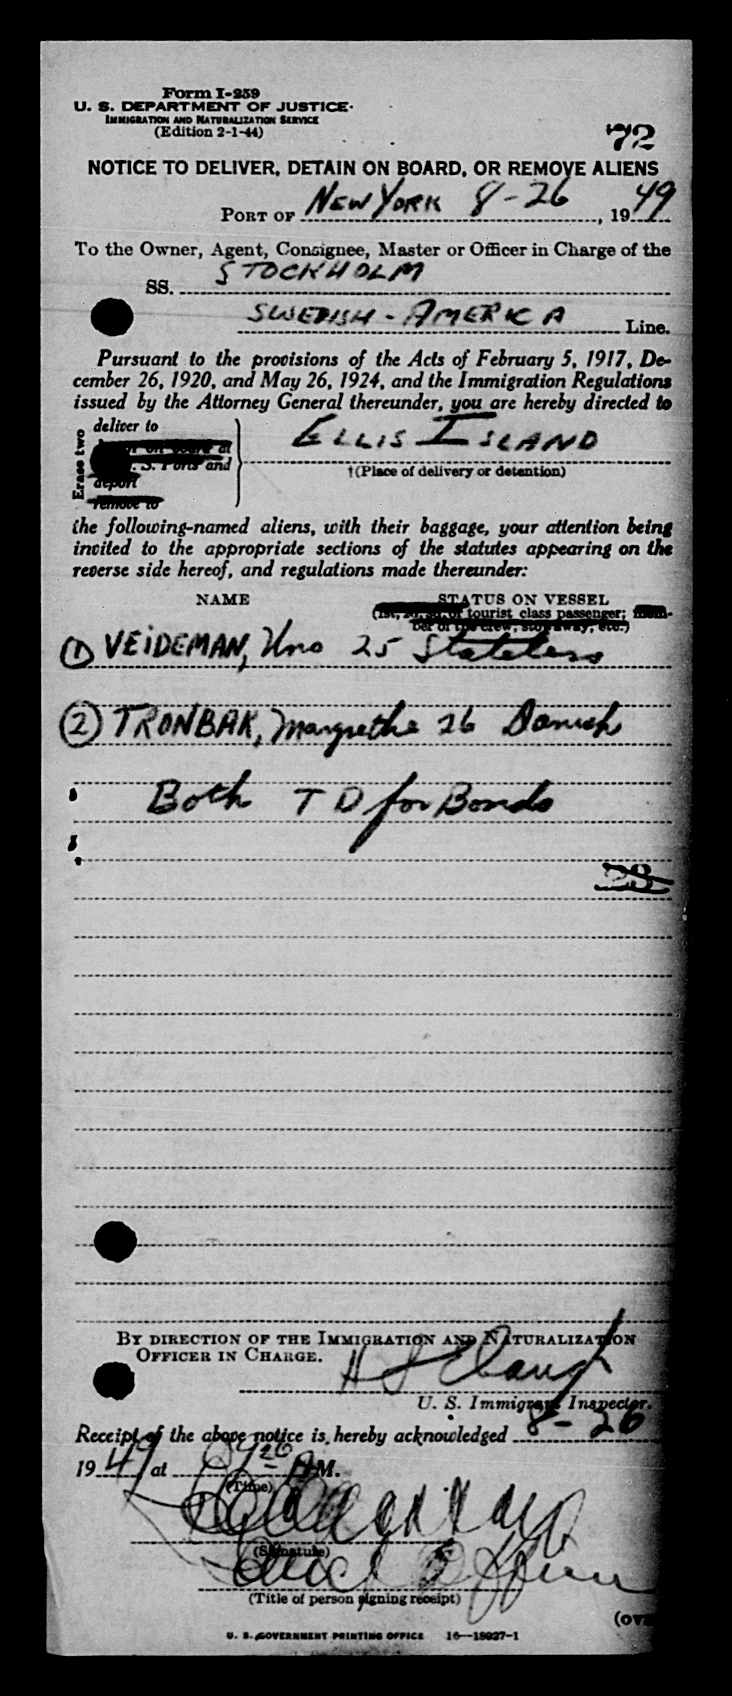 Form I-259
U. S. DEPARTMENT OF JUSTICE
IMMIGRATION AND NATURALIZATION SERVICE
(Edition 2-1-44)
72
NOTICE TO DELIVER, DETAIN ON BOARD, OR REMOVE ALIENS
PORT OF NEW YORK 8-26, 1949
To the Owner, Agent, Consignee, Master or Officer in Charge of the
SS. STOCKHOLM
SWEDISH-AMERICA Line.
Pursuant to the provisions of the Acts of February 5, 1917, De-
cember 26, 1920, and May 26, 1924, and the Immigration Regulations
issued by the Attorney General thereunder, you are hereby directed to
Erase two
deliver to
S. Ports and
deport
remove to
ELLIS ISLAND
†(Place of delivery or detention)
the following-named aliens, with their baggage, your attention being
invited to the appropriate sections of the statutes appearing on the
reverse side hereof, and regulations made thereunder:
NAME STATUS ON VESSEL
tourist class passenger;
① VEIDEMAN, Uno 25 Stateless
② TRONBAK, Margrethe 26 Danish
Both T D for Bonds
23
BY DIRECTION OF THE IMMIGRATION AND NATURALIZATION
OFFICER IN CHARGE.
U. S. Immigrant Inspector.
Receipt of the above notice is hereby acknowledged 8-26
1949 at M.
(Time)
(Signature)
(Title of person signing receipt)
U. S. GOVERNMENT PRINTING OFFICE 16—18927-1